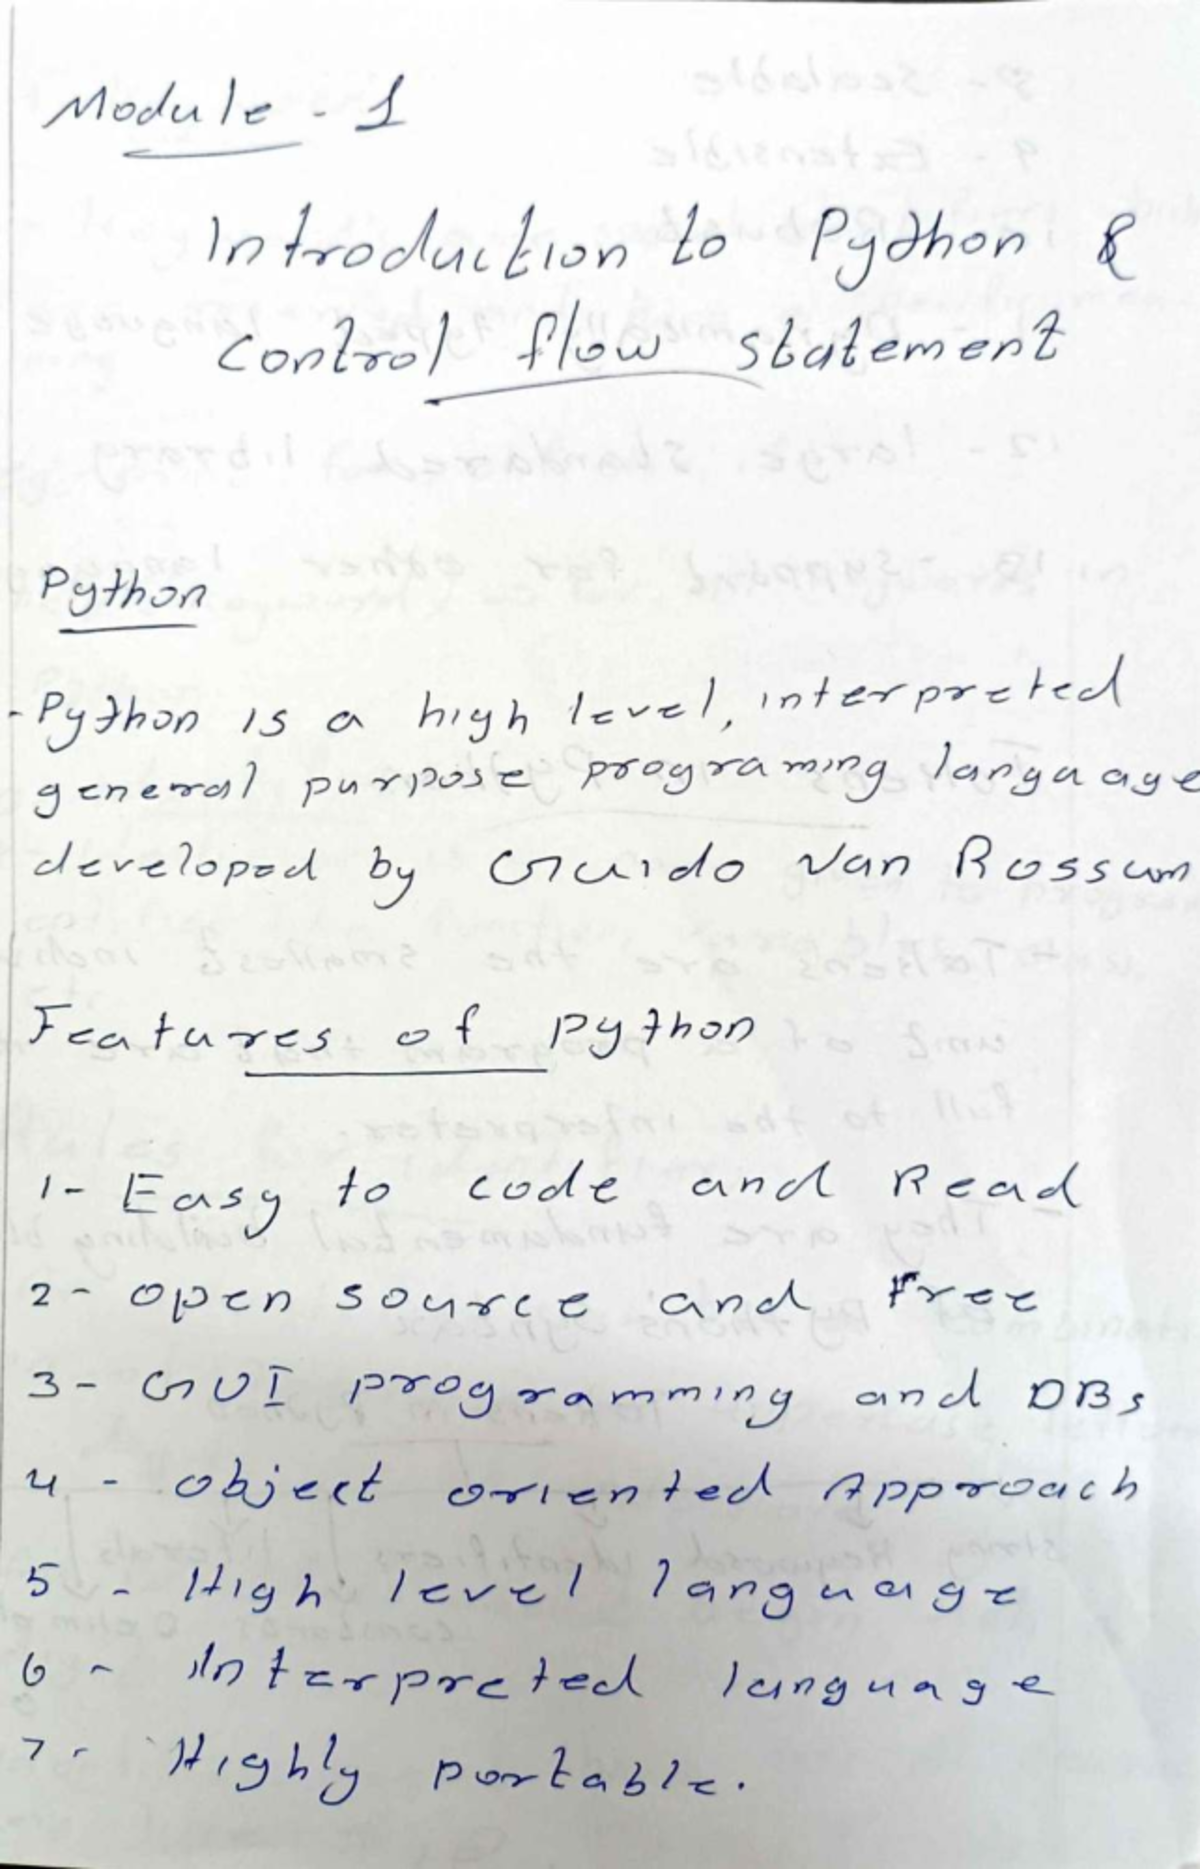 Module - 1
Introduction to Python &
control flow statement
Python
- Python is a high level, interpreted
general purpose programing language
developed by Guido Van Rossum
Features of python
1- Easy to code and Read
2- open source and Free
3- GUI programming and DBs
4 - object oriented Approach
5 - High level language
6 - Interpreted language
7 - Highly portable.